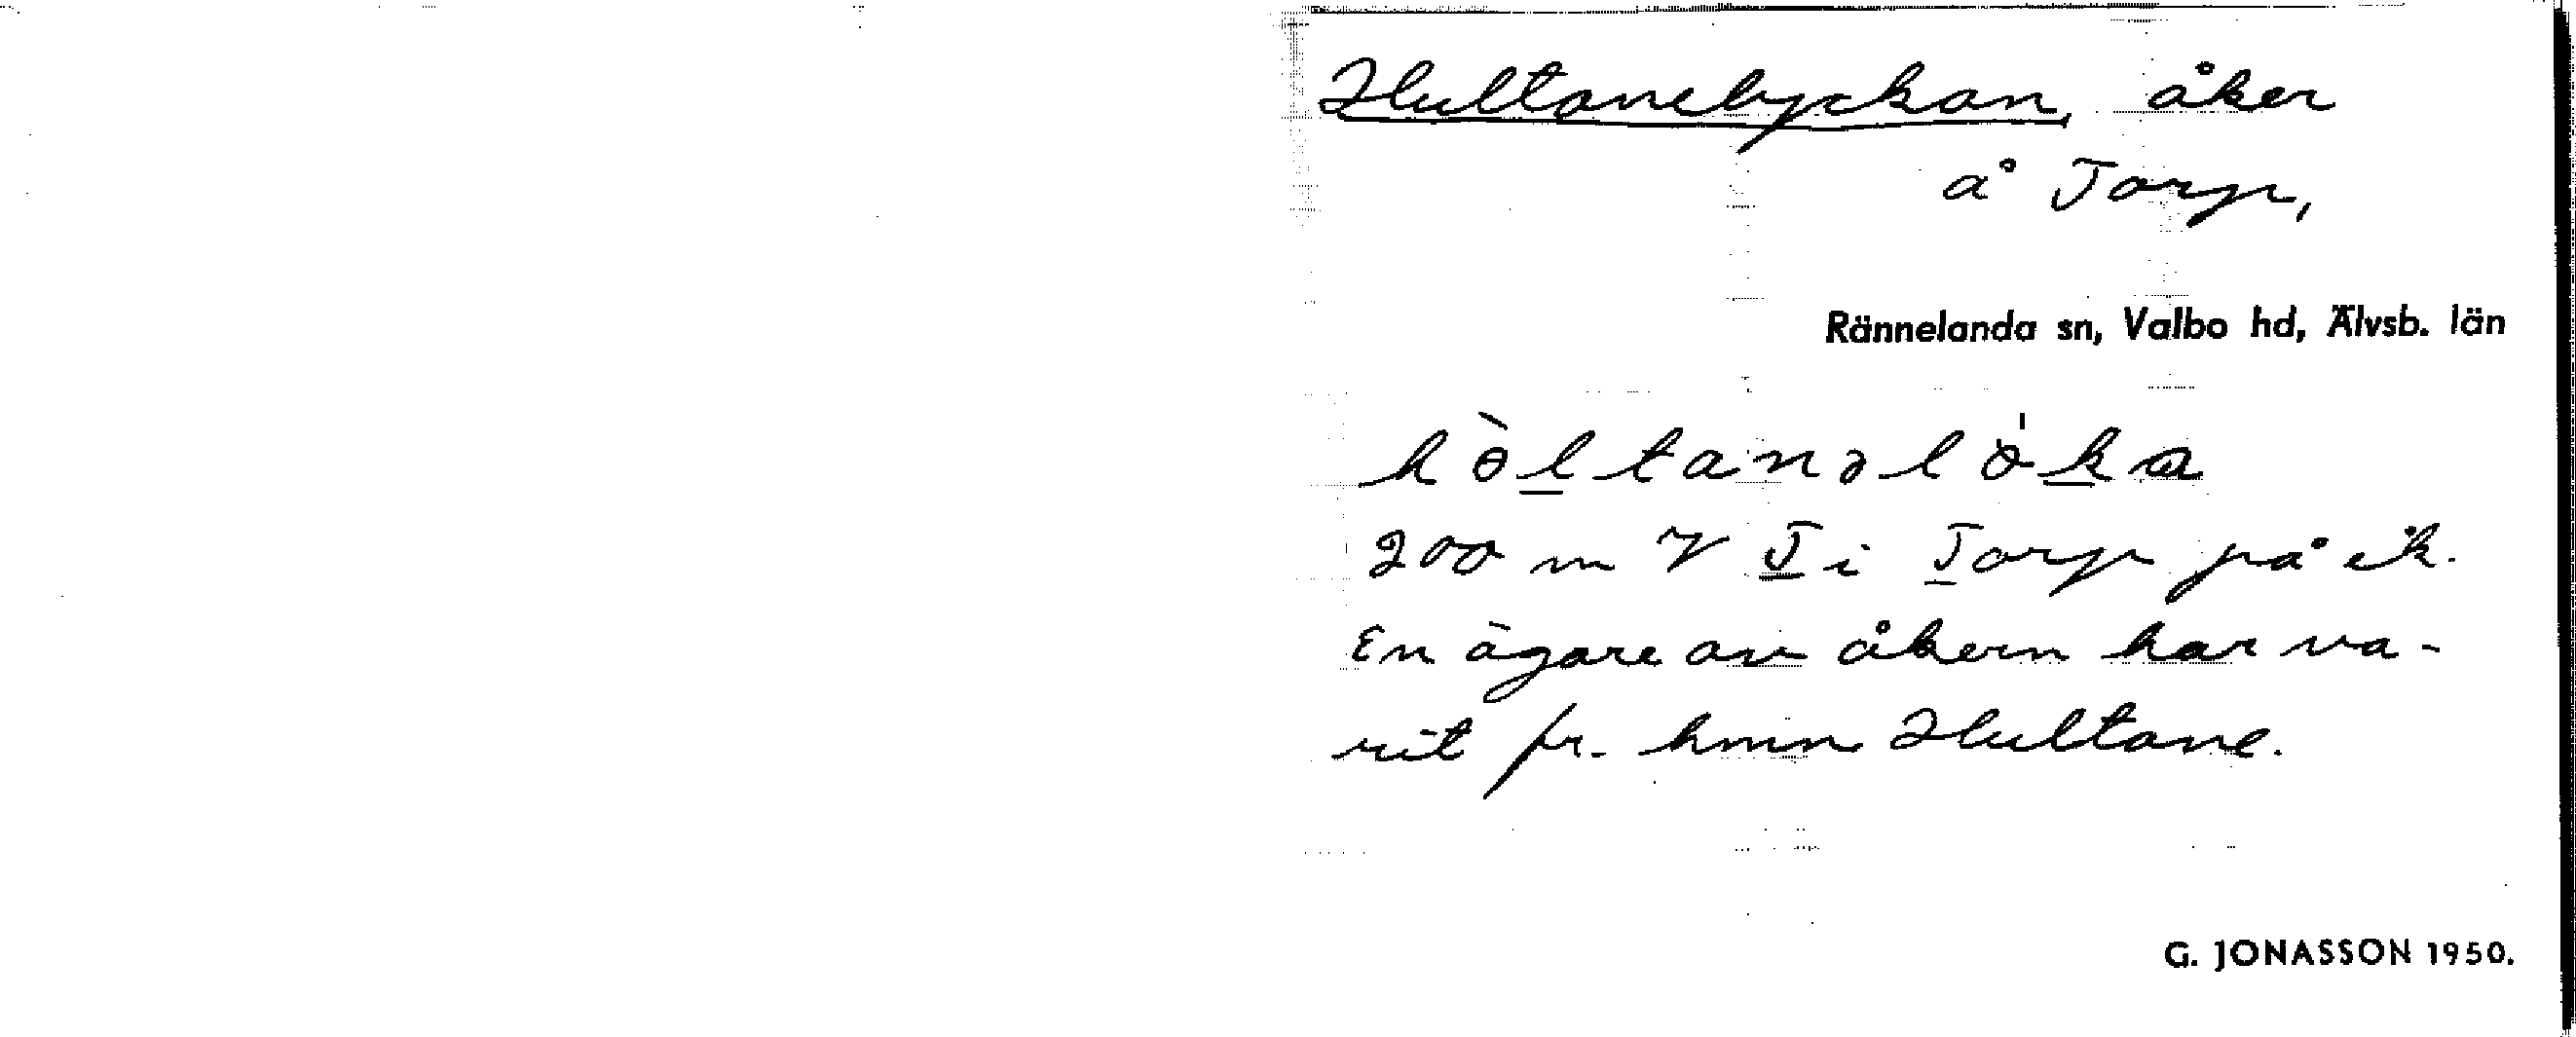 Hultanelyckan, åker
å Torp,
Rännelanda sn, Valbo hd, Älvsb. län
hɵ̀ltanəlɵ̀ka
200 m V T i Torp på ek.
En ägare av åkern har va-
rit fr. hmn Hultane.
G. JONASSON 1950.